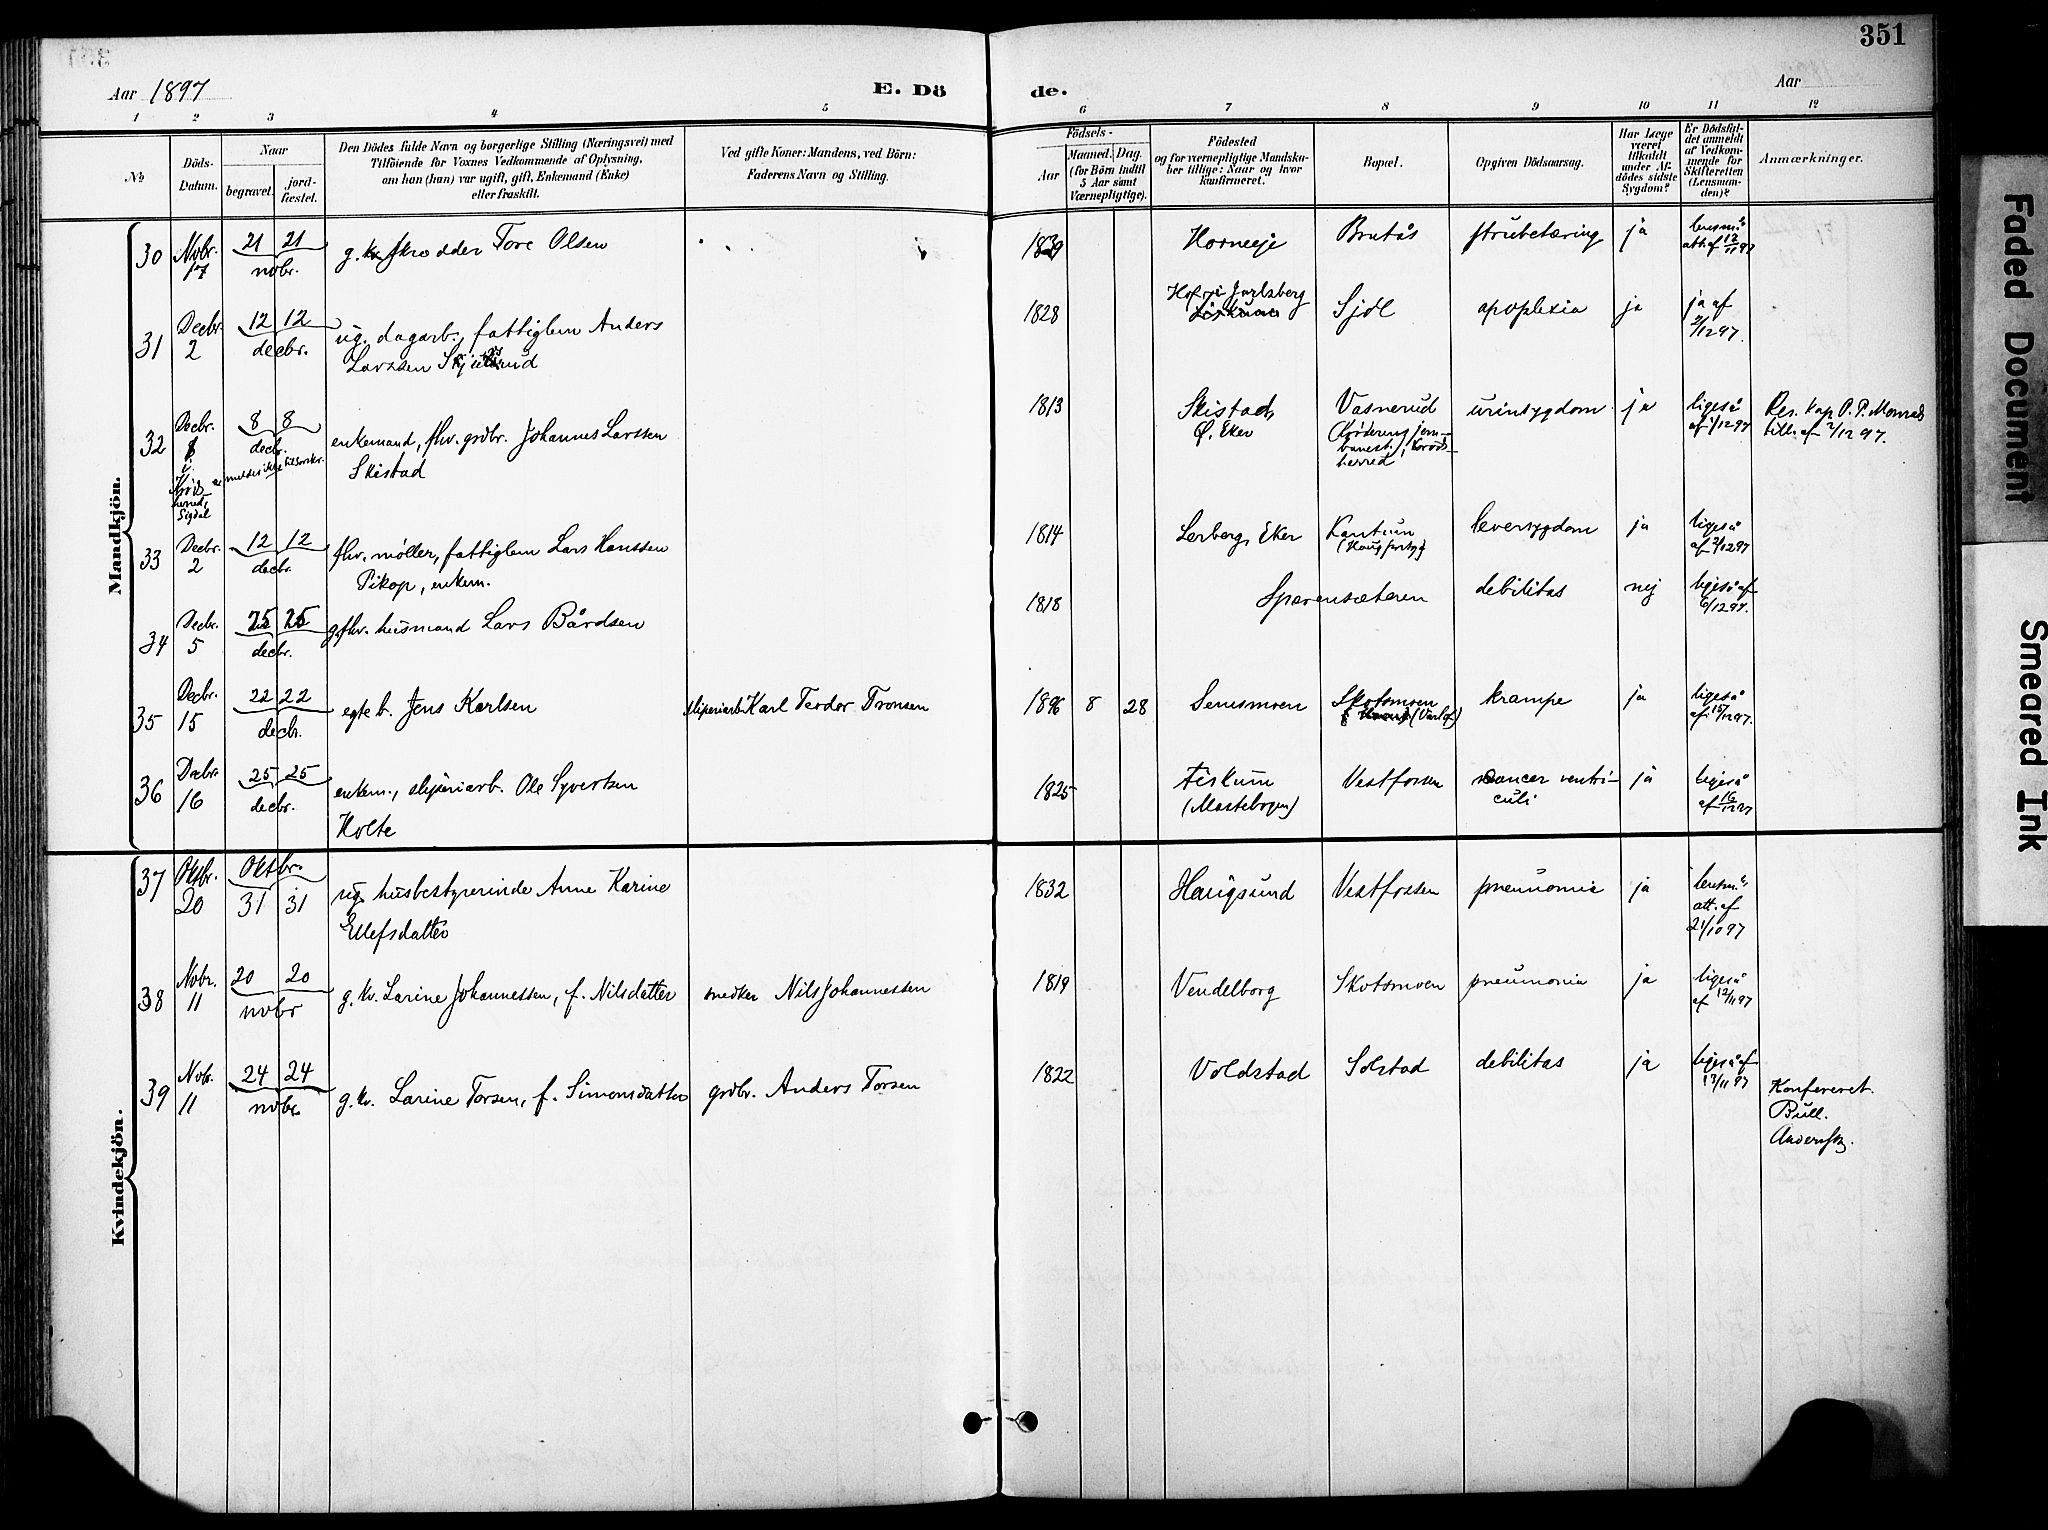 351
Aar 1897
E. Dö
de.
Aar
1 2 3 4 5 6 7 8 9 10 11 12
No
Döds-
Datum.
Naar
begravet.
jord-
fæstet.
Den Dödes fulde Navn og borgerlige Stilling (Næringsvei) med
Tilföiende for Voxnes Vedkommende af Oplysning,
om han (hun) var ugift, gift, Enkemand (Enke)
eller fraskilt.
Ved gifte Koner: Mandens, ved Börn:
Faderens Navn og Stilling.
Födsels-
Aar
Maaned.
Dag.
(for Börn indtil
5 Aar samt
Værnepligtige).
Födested
og for værnepligtige Mandska-
ber tillige: Naar og hvor
konfirmeret.
Bopæl.
Opgiven Dödsaarsag.
Har Læge
været
tilkaldt
under Af-
dödes sidste
Sygdom?
Er Dödsfal-
det anmeldt
af Vedkom-
mende for
Skifteretten
(Lensman-
den)?
Anmærkninger.
Mandkjön.
30 Nobr. 17 21 21 nobr. g. skrædder Tore Olsen 1839 Horneje Brutås strubetæring ja lensm.s att. af 17/11 97
31 Decbr. 2 12 12 decbr. ug. dagarb., fattiglem Anders
Larssen 1828 Hof i Jarlsberg Sjöl apoplexia ja ja af 2/12 97.
32 Decbr. 8 8 decbr. enkemand, fhv. grdbr. Johannes Larssen
Skistad 1813 Skistad, Ø. Eker Vasnerud
(Krøderens jern-
banest.), Krøds-
herred urinsygdom ja ligeså af 1/12 97 Res. kap. O. P. Monrads
till. af 2/12 97.
Krøds-
herred,
Sigdal
33 Decbr. 2 12 12 decbr. fhv. møller, fattiglem Lars Hanssen
Pikop, enkem. 1814 Lerberg, Eker leversygdom ja ligeså af 2/12 97
34 Decbr. 5 25 25 decbr. g. fhv. husmand Lars Bårdsen 1818 Sperensæteren debilitas nej ligeså af 6/12 97.
35 Decbr. 15 22 22 decbr. egte b. Jens Karlsen sliperiarb. Karl Teodor Tronsen 1896 8 28 Semsmoen Skotsmoen krampe ja ligeså af 15/12 97.
36 Decbr. 16 25 25 decbr. enkem., sliperiarb. Ole Syvertsen
Holte 1825 Fiskum
(Mastebogen) Vestfossen cancer ventri-
culi ja ligeså af 16/12 97
Kvindekjön.
37 Oktbr. 20 Oktbr. 31 31 ug. husbestyrerinde Anne Karine
Ellefsdatter 1832 Haugsund Vestfossen pneumonia ja lensm.s att. af 21/10 97
38 Nobr. 11 20 20 nobr g. kv. Larine Johannessen, f. Nilsdatter snedker Nils Johannessen 1819 Vendelborg Skotsmoen pneumonia ja ligeså af 12/11 97
39 Nobr. 11 24 24 nobr. g. kv. Larine Torsen, f. Simonsdatter grdbr. Anders Torsen 1822 Voldstad Solstad debilitas ja ligeså af 13/11 97
Konfereret.
Bull.
Faded Document
Smeared Ink